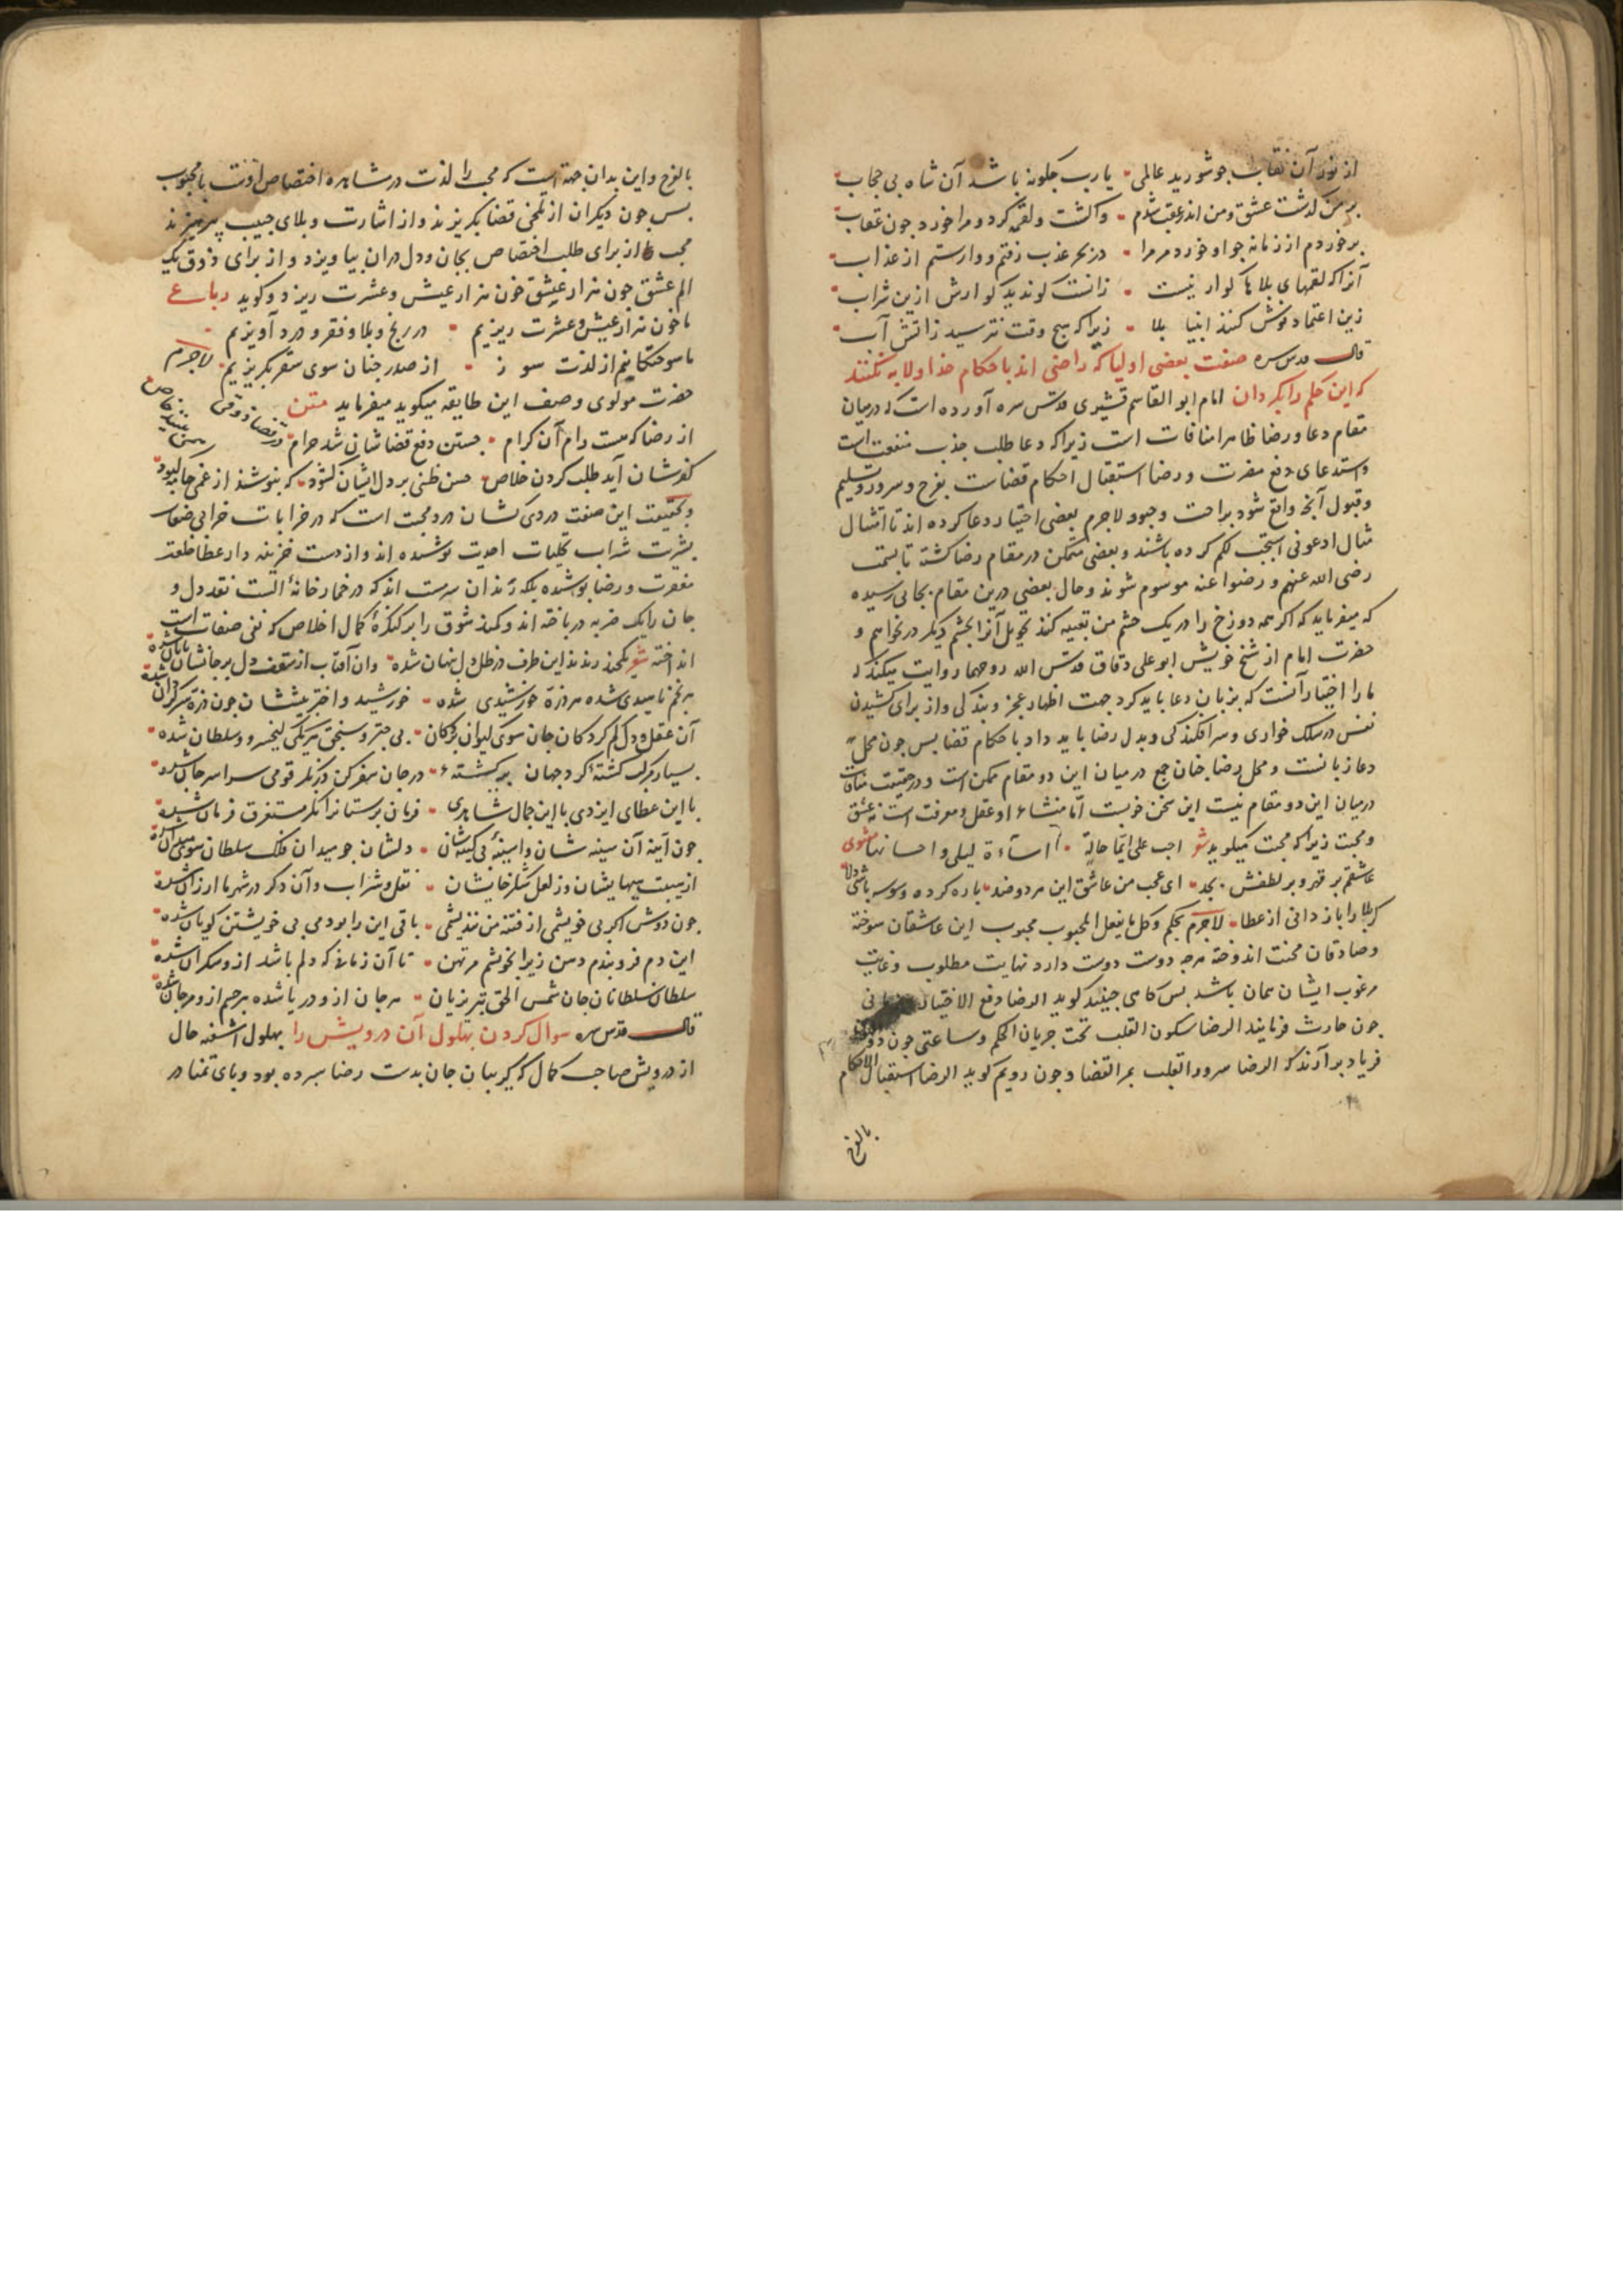 از نور آن نقاب جو شورید عالمی یا رب جکونه باشد آن شاه بی حجاب
بر من کذشت عشق و من اندر عقب شدم واکشت و لقمه کرد و مرا خورد جون عقاب
برخوردم از زمانه جو او خورد مر مرا در بحر عذب رفتم و وارستم از عذاب
آنرا که لقمهای بلاها کوار نیست زانست کو ندید کوارش ازین شراب
زین اعتماد نوش کنند انبیا بلا زیرا که هیج وقت نترسید ز آتش آب
قال قدس سره صفت بعضی اولیا که راضی اند باحکام خدا و لابه نکنند
که این حکم را بکردان امام ابو القاسم قشیری قدس سره آورده است که درمیان
مقام دعا و رضا ظاهرا منافات است زیرا که دعا طلب جذب منفعت است
و استدعای دفع مضرت و رضا استقبال احکام قضاست بفرح و سرور و تسلیم
و قبول آنجه واقع شود براحت وجود لاجرم بعضی اختیار دعا کرده اند تا امتثال
مثال ادعونی استجب لکم کرده باشند و بعضی متمکن در مقام رضا کشته تا بسمت
رضی الله عنهم و رضوا عنه موسوم شوند و حال بعضی درین مقام بجایی رسیده
که میفرماید که اکر همه دوزخ را در یک جشم من تعبیه کنند تحویل آنرا بجشم دیکر در نخواهم و
حضرت امام از شیخ خویش ابو علی دقاق قدس الله روحهما روایت میکند که
ما را اختیار آنست که بزبان دعا باید کرد جهت اظهار عجز و بندکی و از برای کشیدن
نفس در سلک خواری و سرافکندکی و بدل رضا باید داد باحکام قضا بس جون محل
دعا زبانست و محل رضا جنان جمع درمیان این دو مقام ممکن است و در حقیقت منافات
درمیان این دو مقام نیست این سخن خوبست اما منشاء او عقل و معرفت است نه عشق
و محبت زیرا که محبت میکوید شعر احب علی ایما حالة اساءة لیلی و احسانها مثنوی
عاشقم بر قهر و بر لطفش بجد ای عجب من عاشق این هر دو ضد باره کرده وسوسه باشی دلا
کر بلا را باز دانی از عطا لاجرم بحکم و کل ما یفعل المحبوب محبوب این عاشقان سوخته
و صادقان محنت اندوخته هرجه دوست دوست دارد نهایت مطلوب و غایت
مرغوب ایشان همان باشد بس کاهی جنید کوید الرضا دفع الاختیار
جون حارث فرمایند الرضا سکون القلب تحت جریان الحکم و ساعتی جون
فریاد برآرند که الرضا سرور القلب بمر القضا و جون رویم کوید الرضا استقبال الاحکام
بالفرح
بالفرح و این بدان جهت است که محب را لذت در مشاهده اختصاص اوست بامحبوب
بس جون دیکران از تلخی قضا بکریزند و از اشارت و بلای حبیب بپرهیزند
محب از برای طلب اختصاص بجان و دل دران بیاویزد و از برای ذوق یک
الم عشق خون هزار عیش و عشرت ریزد و کوید رباعی
ما خون هزار عیش و عشرت ریزیم در رنج و بلا و فقر و درد آویزیم
ما سوختکانیم از لذت سوز از صدر جنان سوی سقر بکریزیم لاجرم
حضرت مولوی وصف این طایفه میکوید میفرماید متن
از رضا که هست رام آن کرام جستن دفع قضاشان شد حرام در قضا ذوقی همی بینند خاص
کفرشان آید طلب کردن خلاص حسن ظنی بر دل ایشان کشود که نبوشند از غمی جامه کبود
و بحقیقت این صفت دردی کشان درد محبت است که در خرابات خرابی صفات
بشریت شراب تجلیات احدیت نوشیده اند و از دست خزینه دار عطا خلعت
مغفرت و رضا بوشیده بلکه رندان سرمست اند که در خمارخانه الست نقد دل و
جان را بیک ضربه درباخته اند و کمند شوق را بر کنکره کمال اخلاص که نفی صفات است
انداخته شعر کنجند رندند این طرف در ظل دل بنهان شده وان آفتاب از سقف دل بر جانشان تابان شده
هر نجم ناهیدی شده هر ذره خورشیدی شده خورشید و اختر بیششان جون ذره سرکردان شده
آن عقل و دل کم کردکان جان سوی کیوان بردکان بی جتر و سنجق هر یکی کیخسرو و سلطان شده
بسیار مرکب کشته کرد جهان برکشته در جان سفر کن درنکر قومی سراسر جان شده
با این عطای ایزدی با این جمال شاهدی فرمان برستانرا نکر مستغرق فرمان شده
جون آینه آن سینه شان وان سینه بی کینه شان دلشان جو میدان فلک سلطان سوی میدان شده
از هیبت هیهایشان وز لعل شکرخایشان نقل و شراب و آن دکر در شهر ما ارزان شده
جون دوش اکر بی خویشمی از فتنه من نندیشمی باقی این را بودمی بی خویشتن کویان شده
این دم فرو بندم دهن زیرا بخویشم مرتهن تا آن زمانی که دلم باشد ازو سکران شده
سلطان سلطانان جان شمس الحق تبریزیان هر جان ازو دریا شده هر جسم ازو مرجان شده
قال قدس سره سوال کردن بهلول آن درویش را بهلول آشفته حال
از درویش صاحب کمال که کریبان جان بدست رضا سبرده بود و بای تمنا در